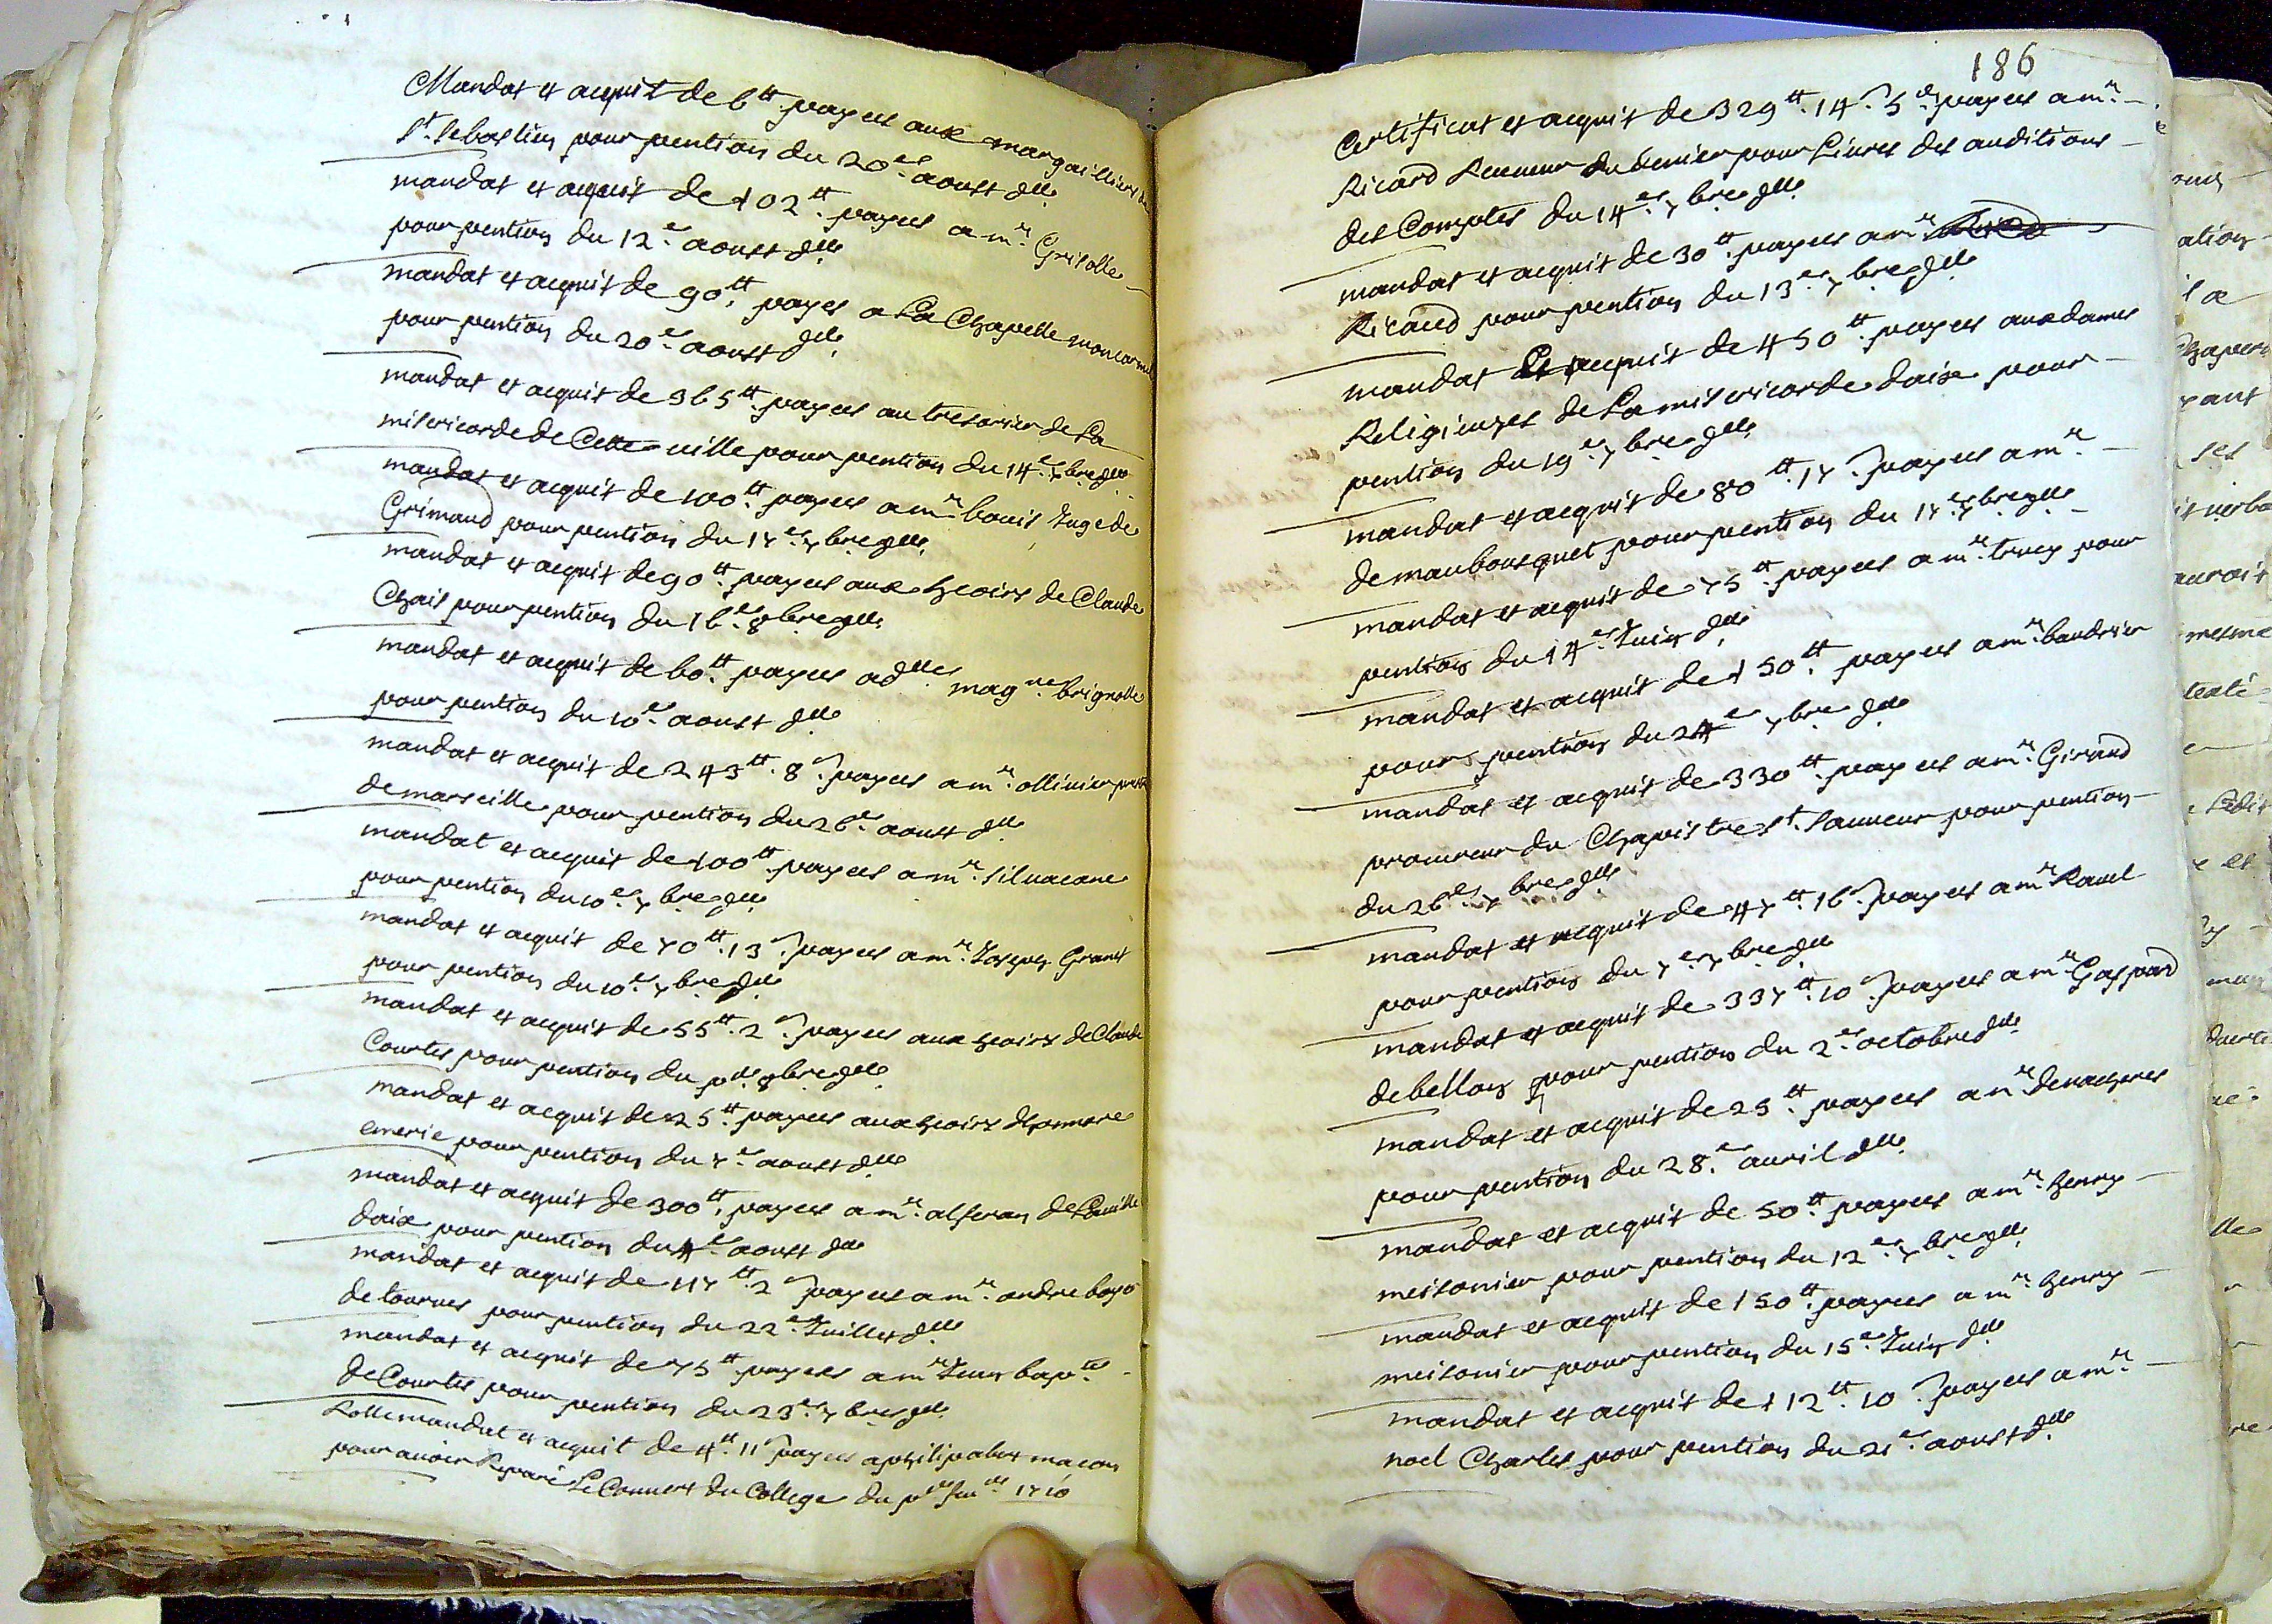 Mandat et acquit de 6tt. payees aux margailliers
St. Sebastien pour pention du 20e. aoust dlle.
mandat et acquit de 102tt. payees a mr. Grisolle
pour pention du 12e. aoust dlle
mandat et acquit de 90tt. payes a La Chapelle moncarmel
pour pention du 20e. aoust dlle.
mandat et acquit de 365tt. payees au tresorier de La
misericorde de Cette ville pour pention du 14e. 7bre dlle
mandat et acquit de 100tt. payees a mr bouis Juge de
Grimaud pour pention du 17e. 7bre dlle.
mandat et acquit de 90tt. payees aux hoirs de Claude
Chais pour pention du 16e. 8bre dlle.
mandat et acquit de 60tt. payees a dlle magne. brignolle
pour pention du 10e. aoust dlle
mandat et acquit de 243tt. 8s. payees a mr. ollivier
de marseille pour pention du 26e. aoust dlle
mandat et acquit de 100tt payees a mr. silvacane
pour pention du 10e. 7bre dlle
mandat et acquit de 70tt. 13s payees a mr. Joseph Granet
pour pention du 10e. 7bre dlle.
mandat et acquit de 55tt. 2s. payees aux hoirs de Claude
Courtes pour pention du pr. 8bre dlle.
mandat et acquit de 25tt. payees aux hoirs
emerie pour pention du 7e. aoust dlle
mandat et acquit de 300tt. payees a mr. alferan de La ville
daix pour pention du 4e. aoust dlle
mandat et acquit de 117tt. 2s payees a mr. andre
de tourves pour pention du 22e. Juillet dlle
mandat et acquit de 75tt payees a mr Jean bapte.
de Courtes pour pention du 23e. 7bre dlle.
Rolle mandat et acquit de 4tt. 11s payees a philip masson
pour avoir Reparé Le Couvert du College du 1710
186
Certificat et acquit de 329tt. 14s 5d. payees a mr. -
Ricard Receveur du denier pour Livres des auditions -
des Comptes du 14e. 7bre dlle
mandat et acquit de 30tt. payees a mr
Ricaud pour pention du 13e. 7bre dlle
mandat et acquit de 450tt. payees aux dames
Religieuzes de La misericorde daix pour -
pention du 19e. 7bre dlle.
mandat et acquit de 80tt. 17s. payees a mr -
de maubousquet pour pention du 17e. 7bre dlle -
mandat et acquit de 75tt. payees a mr. truey pour
pention du 14e. Juin dlle.
mandat et acquit de 150tt. payees a mr. baudrier
pour pention du 24e 7bre dlle
mandat et acquit de 330tt. payees a mr. Giraud
procureur du Chapistre St. Sauveur pour pention -
du 26e. 7bre dlle
mandat et acquit de 47tt. 16s. payees a mr Ravel
pour pention du 7e. 7bre dlle
mandat et acquit de 337tt. 10s. payees a mr Gaspard
de belloy pour pention du 2e. octobre dlle
mandat et acquit de 25tt. payees a mr. devacheres
pour pention du 28e. avril dlle.
mandat et acquit de 50tt payees a mr. henry -
meisonier pour pention du 12e. 7bre dlle
mandat et acquit de 150tt. payees a mr henry -
meisonier pour pention du 15e. Juin dlle
mandat et acquit de 112tt. 10s. payees a mr -
noel Charles pour pention du 21e. aoust dlle